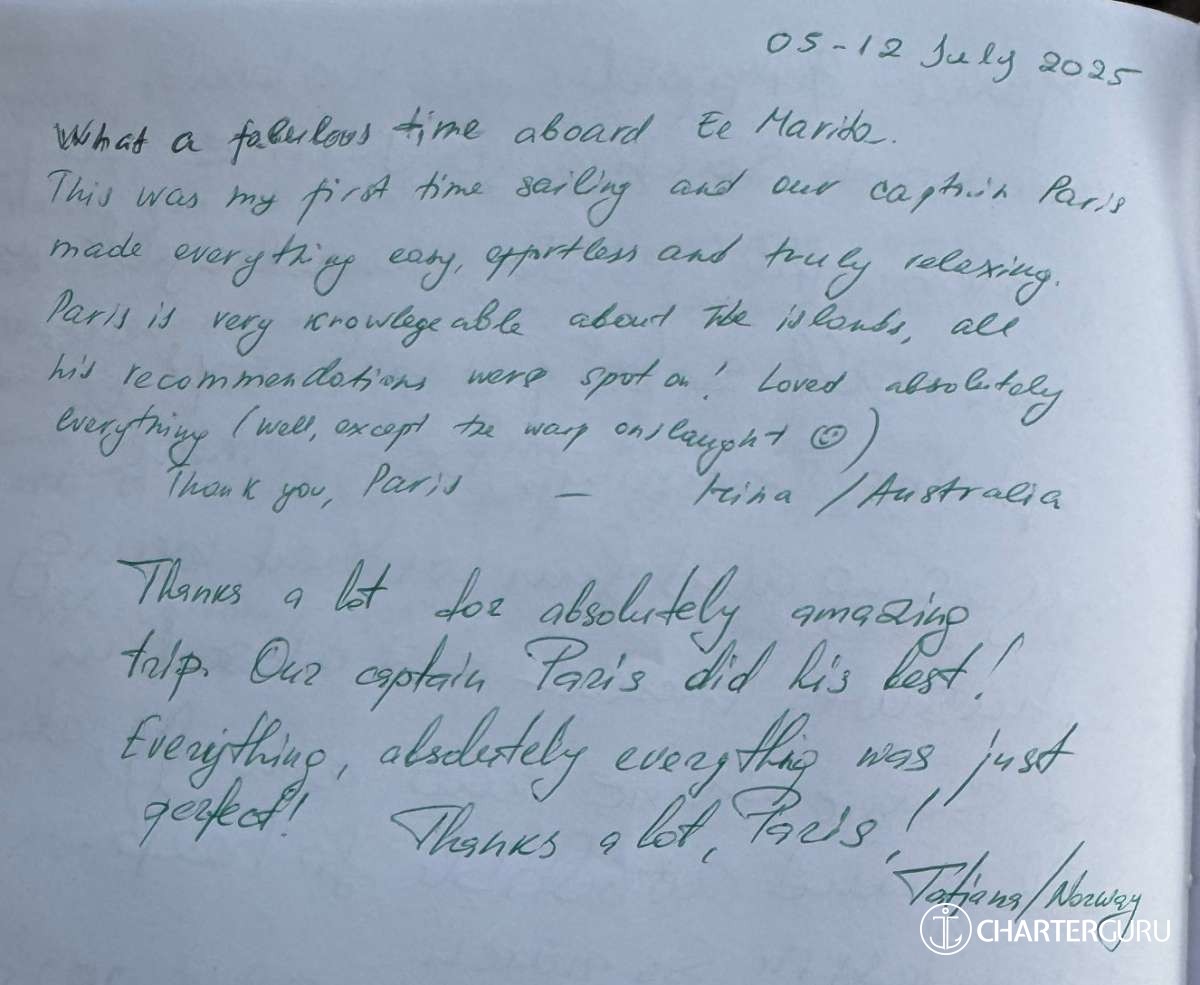 05-12 July 2025
What a fabulous time aboard Ee Marida.
This was my first time sailing and our captain Paris
made everything easy, effortless and truly relaxing.
Paris is very knowlegeable about the islands, all
his recommendations were spot on! Loved absolutely
everything (well, except the wasp onslaught ☺)
Thank you, Paris — Irina / Australia
Thanks a lot for absolutely amazing
trip. Our captain Paris did his best!
Everything, absolutely everything was just
perfect! Thanks a lot, Paris!
Tatjana/Norway
CHARTERGURU